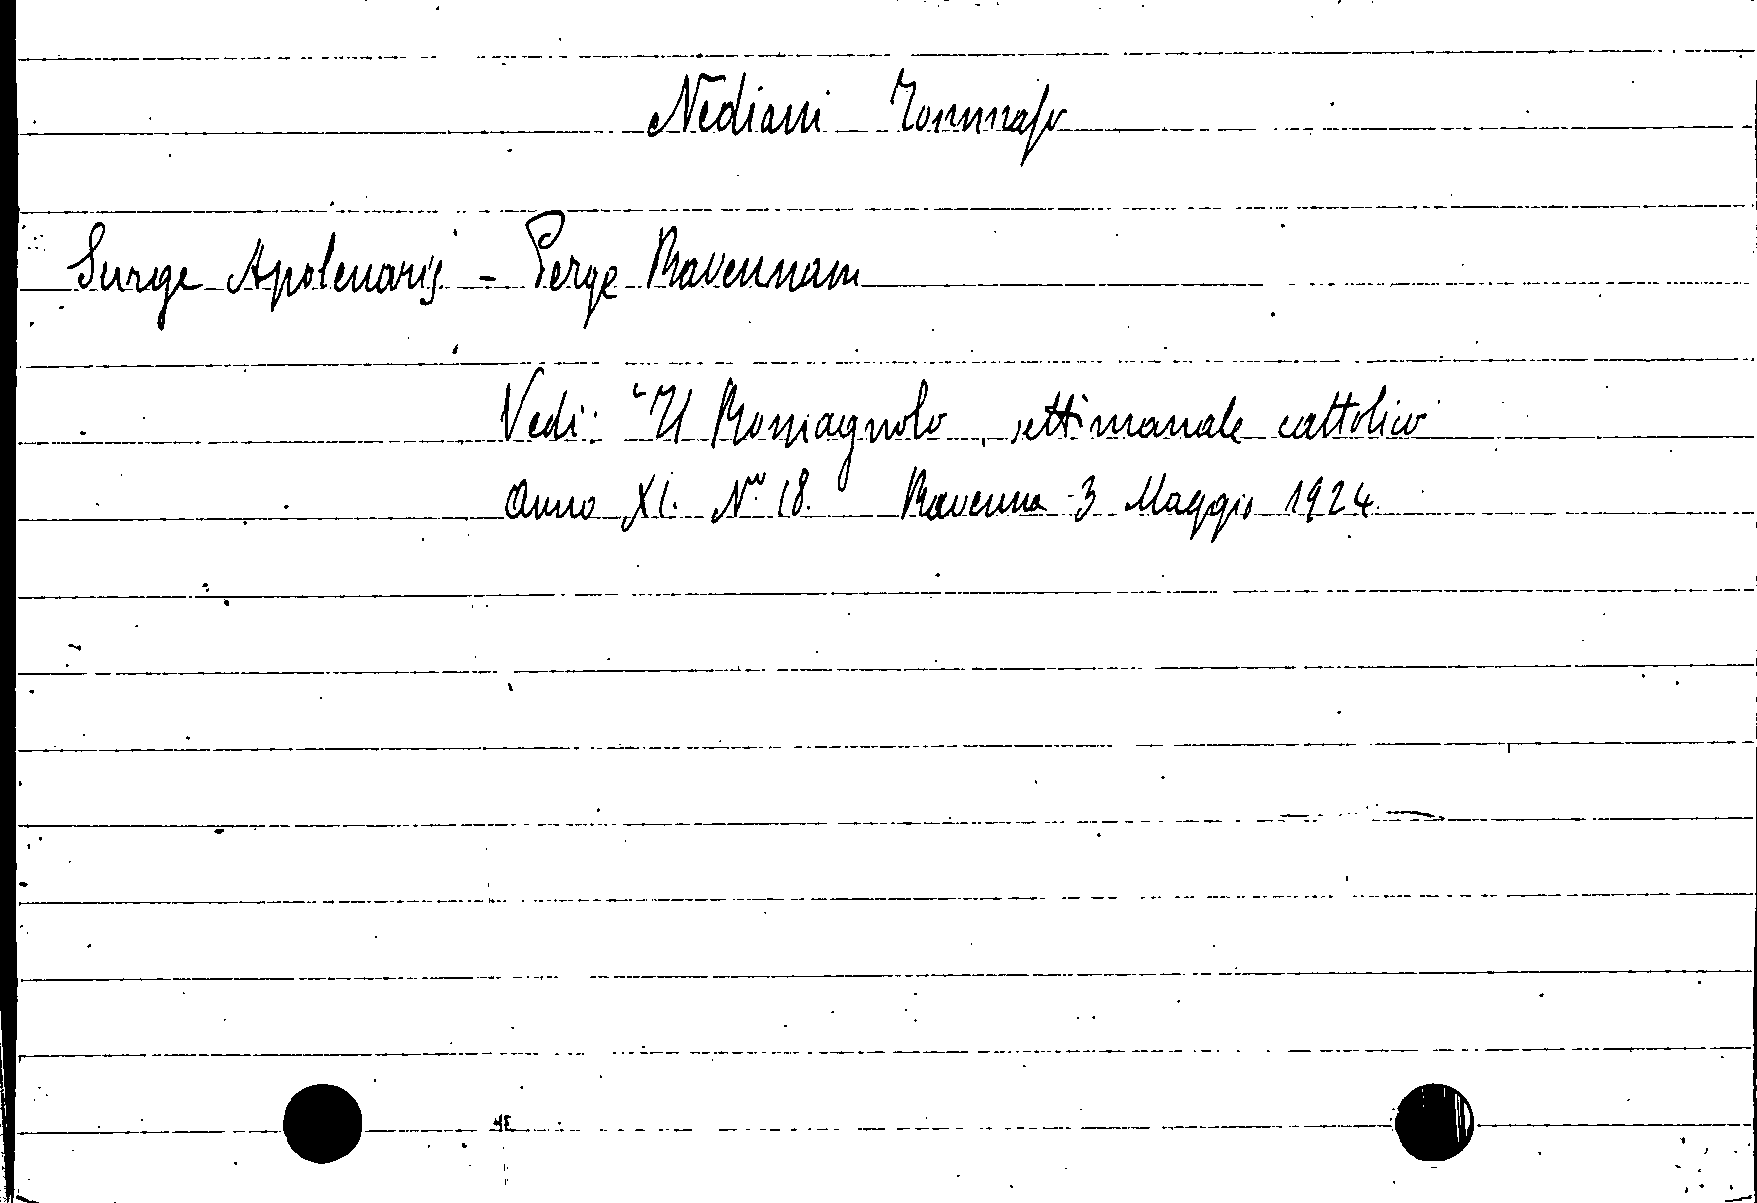 Nediani Tommaso
Surge Apolenaris - Perge Ravennam
Vedi: "Il Romagnolo, settimanale cattolico
Anno XI. N.º 18. Ravenna 3 Maggio 1924.